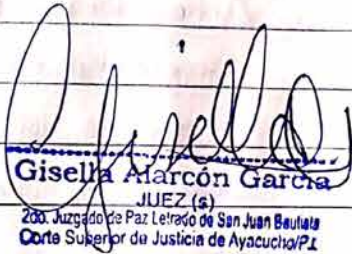 Gisella
Gisella Alarcón García
JUEZ (s)
2do. Juzgado de Paz Letrado de San Juan Bautista
Corte Superior de Justicia de Ayacucho/PJ